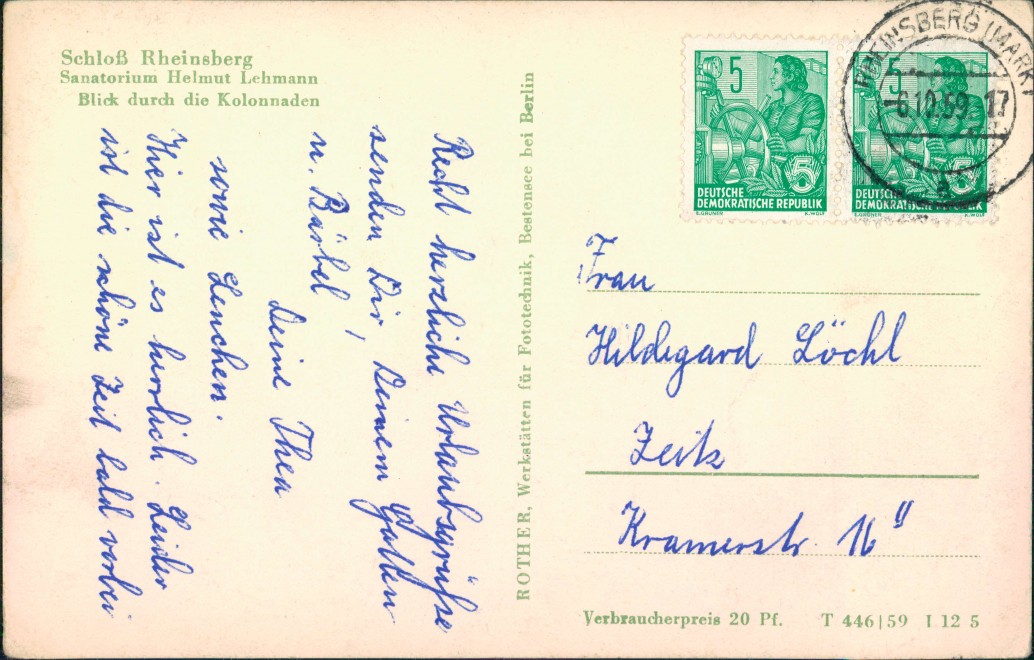 Schloß Rheinsberg
Sanatorium Helmut Lehmann
Blick durch die Kolonnaden
Recht herzliche Urlaubsgrüße
senden Dir, Deinem Gatten
u. Bärbel
Deine Thea
sowie Lenchen.
Hier ist es herrlich. Leider
ist die schöne Zeit bald vorbei
ROTHER, Werkstätten für Fototechnik, Bestensee bei Berlin
5
5
DEUTSCHE
DEMOKRATISCHE REPUBLIK
E.GRUNER K.WOLF
5
5
DEUTSCHE
DEMOKRATISCHE REPUBLIK
E.GRUNER K.WOLF
RHEINSBERG (MARK)
-6.10.59.17
a
Frau
Hildegard Löchl
Zeitz
Kramerstr. 16 II
Verbraucherpreis 20 Pf. T 446|59 I 12 5